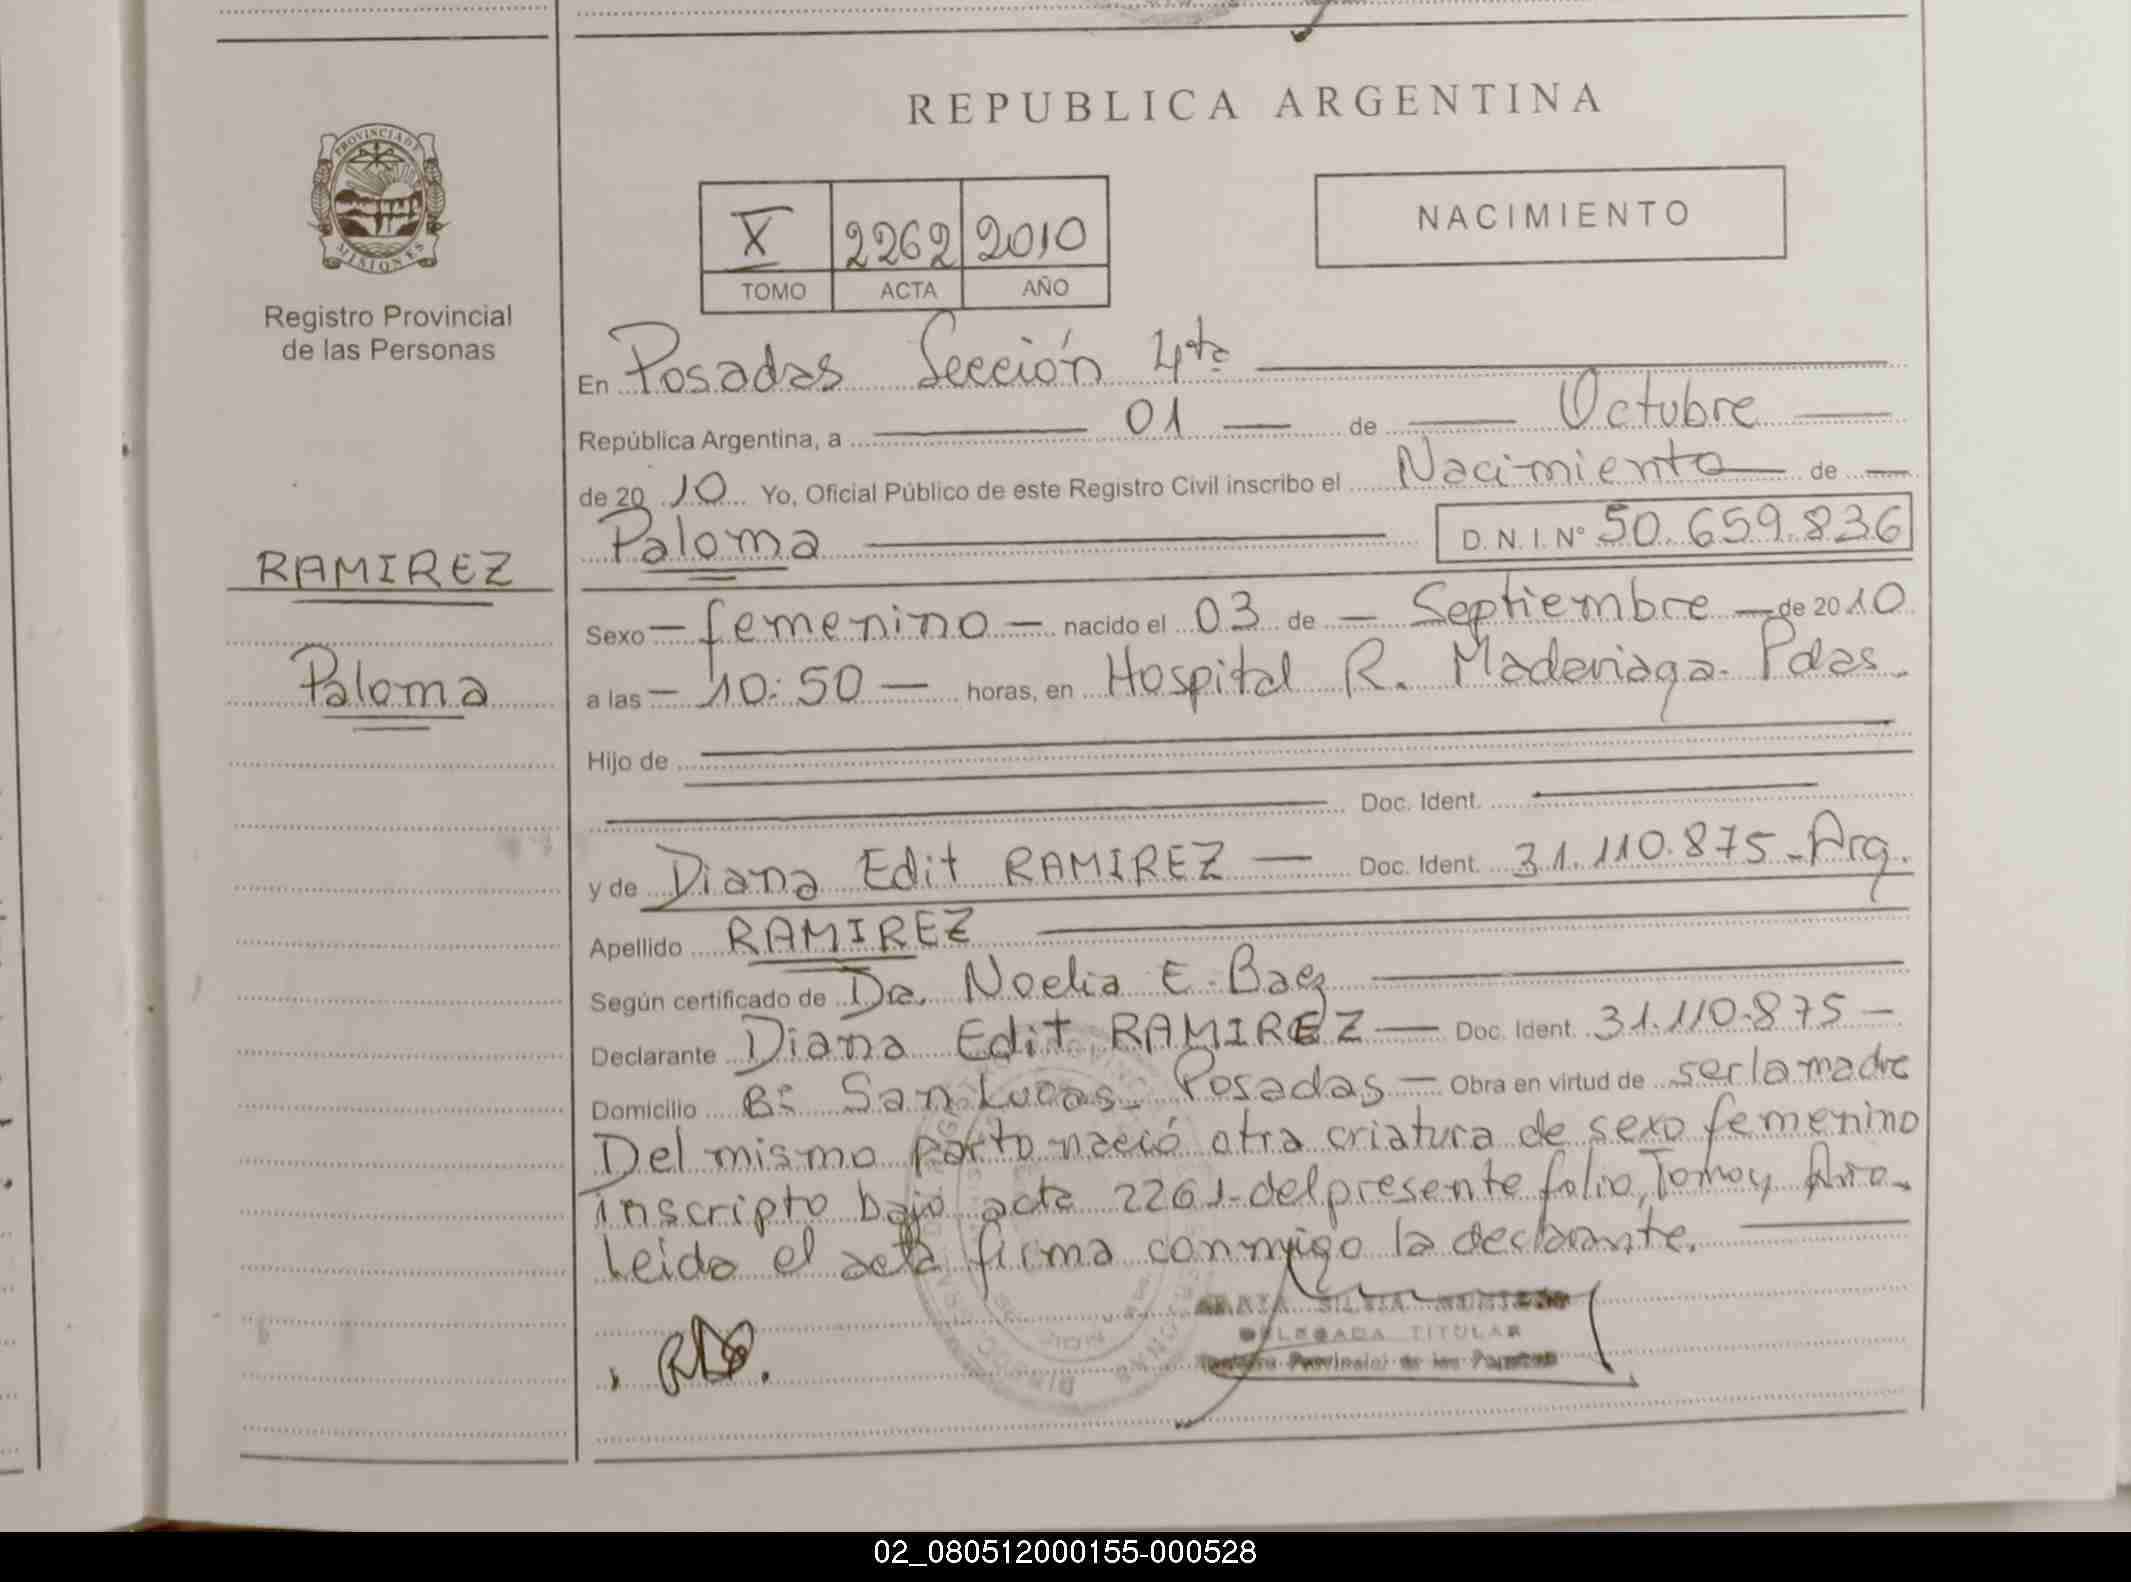 REPUBLICA ARGENTINA
PROVINCIA DE
MISIONES
Registro Provincial
de las Personas
NACIMIENTO
X 2262 2010
TOMO ACTA AÑO
En Posadas Sección 4ta
República Argentina, a 01 de Octubre
de 2010 Yo, Oficial Público de este Registro Civil inscribo el Nacimiento de
Paloma D.N.I.Nº 50.659.836
RAMIREZ
Paloma
Sexo femenino nacido el 03 de Septiembre de 2010
a las 10:50 horas, en Hospital R. Madariaga. Pdas.
Hijo de
Doc. Ident.
y de Diana Edit RAMIREZ Doc. Ident. 31.110.875 - Arg.
Apellido RAMIREZ
Según certificado de Dra. Noelia E. Baez
Declarante Diana Edit RAMIREZ Doc. Ident. 31.110.875
Domicilio Bº San Lucas - Posadas Obra en virtud de ser la madre
Del mismo parto nació otra criatura de sexo femenino
inscripto bajo acta 2261 del presente folio, Tomo y Año.
Leida el acta firma conmigo la declarante.
SILVIA
DELEGADA TITULAR
Provincial de las Personas
02_080512000155-000528